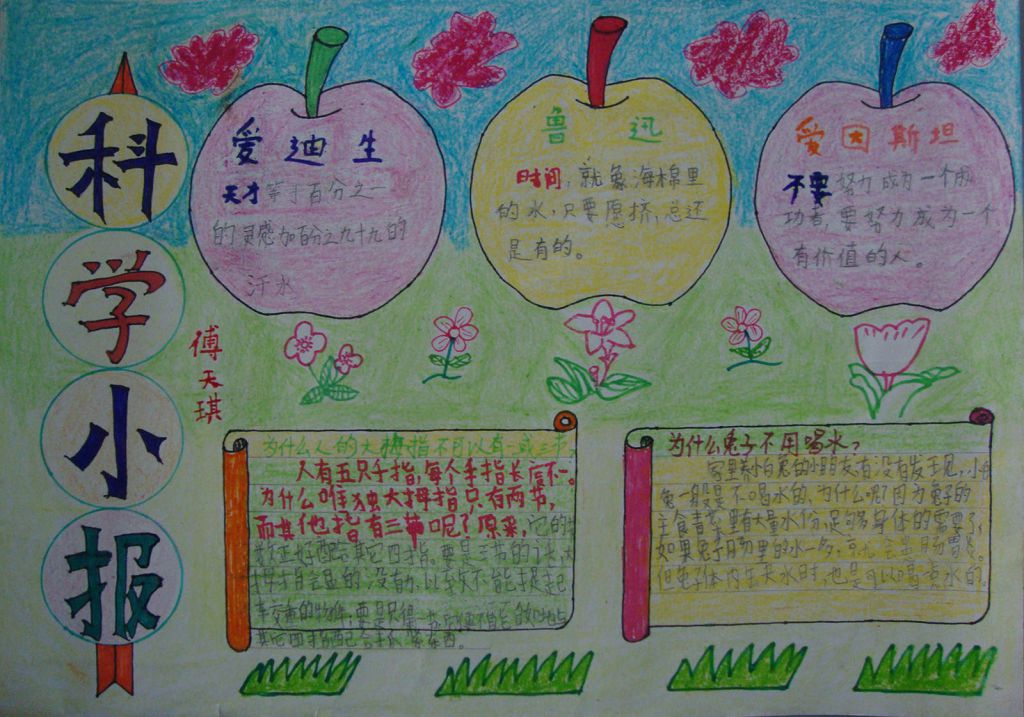 科
学
小
报
傅
天
琪
爱迪生
天才等于百分之一
的灵感加百分之九十九的
汗水
鲁迅
时间，就象海棉里
的水，只要愿挤，总还
是有的。
爱因斯坦
不要努力成为一个成
功者，要努力成为一个
有价值的人。
为什么人的大拇指不可以有一或三节
人有五只手指，每个手指长度不一。
为什么唯独大拇指只有两节，
而其他指有三节呢？原来，它的
其它四指。要是三节的话，大
拇指会显的没有力，以致不能提起
较重的物件，要是只得一节，就
其它四指配合手抓紧东西。
为什么兔子不用喝水？
家里养小白兔的小朋友有没有发于见，小白
兔一般是不喝水的，为什么呢？因为兔子的
主食青菜里有大量水份，足够身体的需要了，
如果兔子肠里的水一多，就会患肠胃炎。
但兔子体内失水时，也是可以喝点水的。